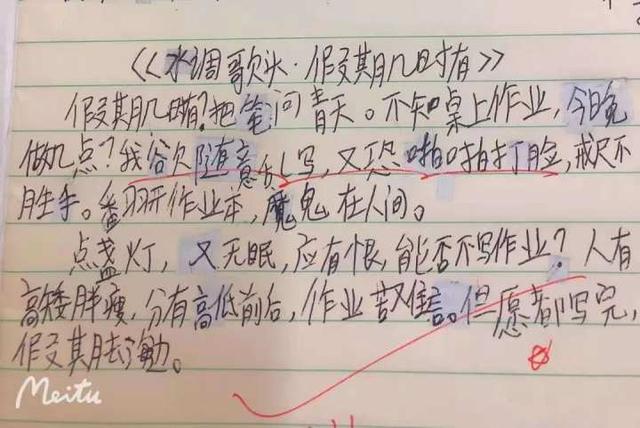 《水调歌头·假期几时有》
假期几时有?把笔问青天。不知桌上作业,今日晚
做几点?我欲随意乱写,又恐啪啪打脸,戒尺不
胜手。翻开作业本,魔鬼在人间。
点盏灯,又无眠,应有恨,能否不写作业?人有
高矮胖瘦,分有高低前后,作业苦难言。但愿都写完,
假期去
Meitu